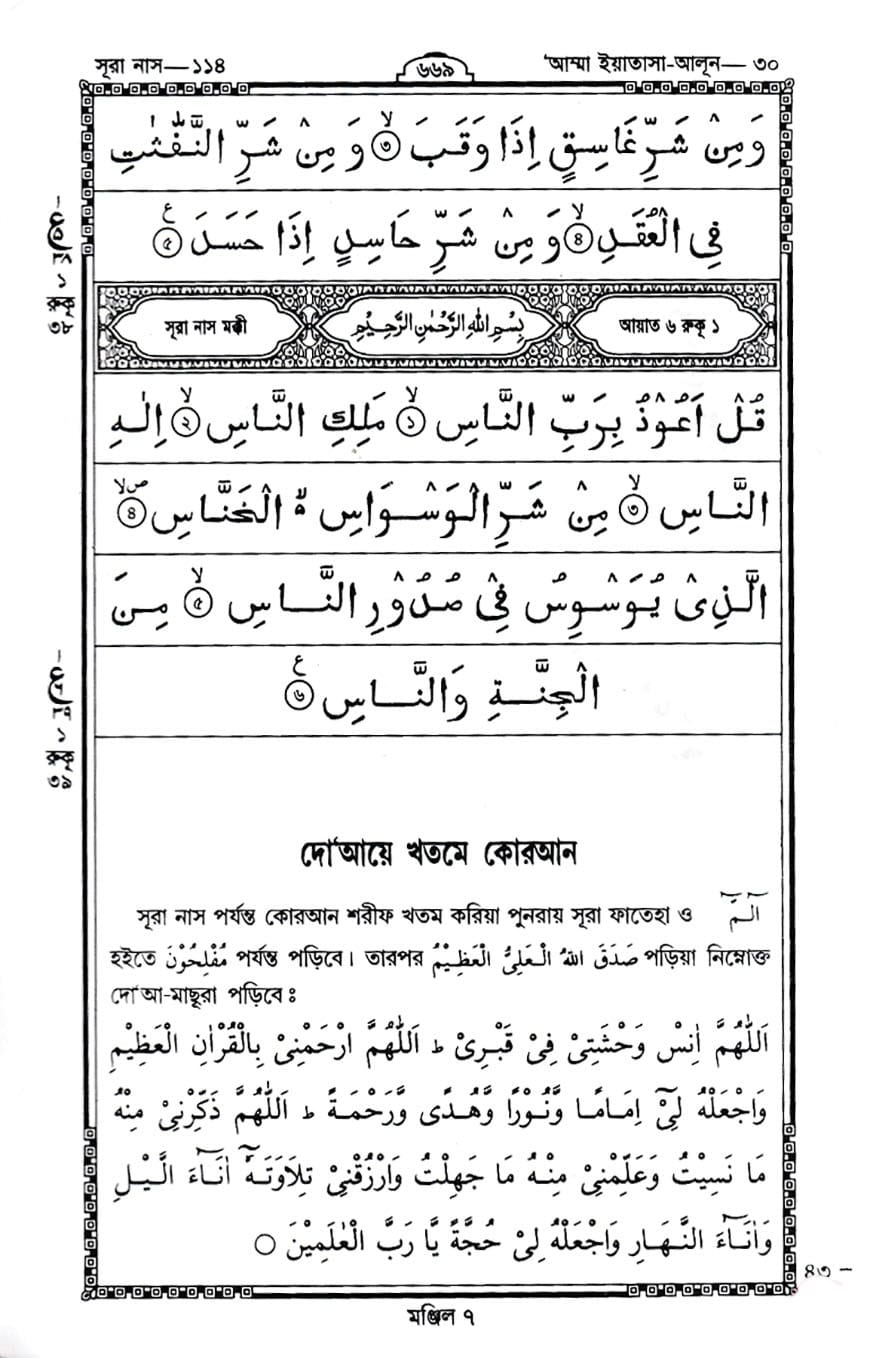 সূরা নাস—১১৪ ৬৬৯ ‘আম্মা ইয়াতাসা-আলূন— ৩০
وَمِنْ شَرِّ غَاسِقٍ إِذَا وَقَبَ ۙ﴿৩﴾ وَمِنْ شَرِّ النَّفّٰثٰتِ
فِي الْعُقَدِ ۙ﴿৪﴾ وَمِنْ شَرِّ حَاسِدٍ إِذَا حَسَدَ ﴿৫﴾ ع
সূরা নাস মক্কী بِسْمِ اللهِ الرَّحْمٰنِ الرَّحِيْمِ আয়াত ৬ রুকূ ১
قُلْ اَعُوْذُ بِرَبِّ النَّاسِ ۙ﴿১﴾ مَلِكِ النَّاسِ ۙ﴿২﴾ اِلٰهِ
النَّاسِ ۙ﴿৩﴾ مِنْ شَرِّ الْوَسْوَاسِ ۵ الْخَنَّاسِ ﴿৪﴾ صلا
الَّذِىْ يُوَسْوِسُ فِىْ صُدُوْرِ النَّاسِ ۙ﴿৫﴾ مِنَ
الْجِنَّةِ وَالنَّاسِ ﴿৬﴾ ع
রুকু ৩৮
রুকু ৩৯
দো‘আয়ে খতমে কোরআন
সূরা নাস পর্যন্ত কোরআন শরীফ খতম করিয়া পুনরায় সূরা ফাতেহা ও الٓمّٓ
হইতে مُفْلِحُوْنَ পর্যন্ত পড়িবে। তারপর صَدَقَ اللهُ الْعَلِىُّ الْعَظِيْمُ পড়িয়া নিম্নোক্ত
দো‘আ-মাছূরা পড়িবেঃ
اَللّٰهُمَّ اٰنِسْ وَحْشَتِىْ فِىْ قَبْرِىْ ط اَللّٰهُمَّ ارْحَمْنِىْ بِالْقُرْاٰنِ الْعَظِيْمِ
وَاجْعَلْهُ لِىْٓ اِمَامًا وَّنُوْرًا وَّهُدًى وَّرَحْمَةً ط اَللّٰهُمَّ ذَكِّرْنِىْ مِنْهُ
مَا نَسِيْتُ وَعَلِّمْنِىْ مِنْهُ مَا جَهِلْتُ وَارْزُقْنِىْ تِلَاوَتَهٗٓ اٰنَآءَ الَّيْلِ
وَاٰنَآءَ النَّهَارِ وَاجْعَلْهُ لِىْ حُجَّةً يَّا رَبَّ الْعٰلَمِيْنَ ○
৪৩ –
মঞ্জিল ৭